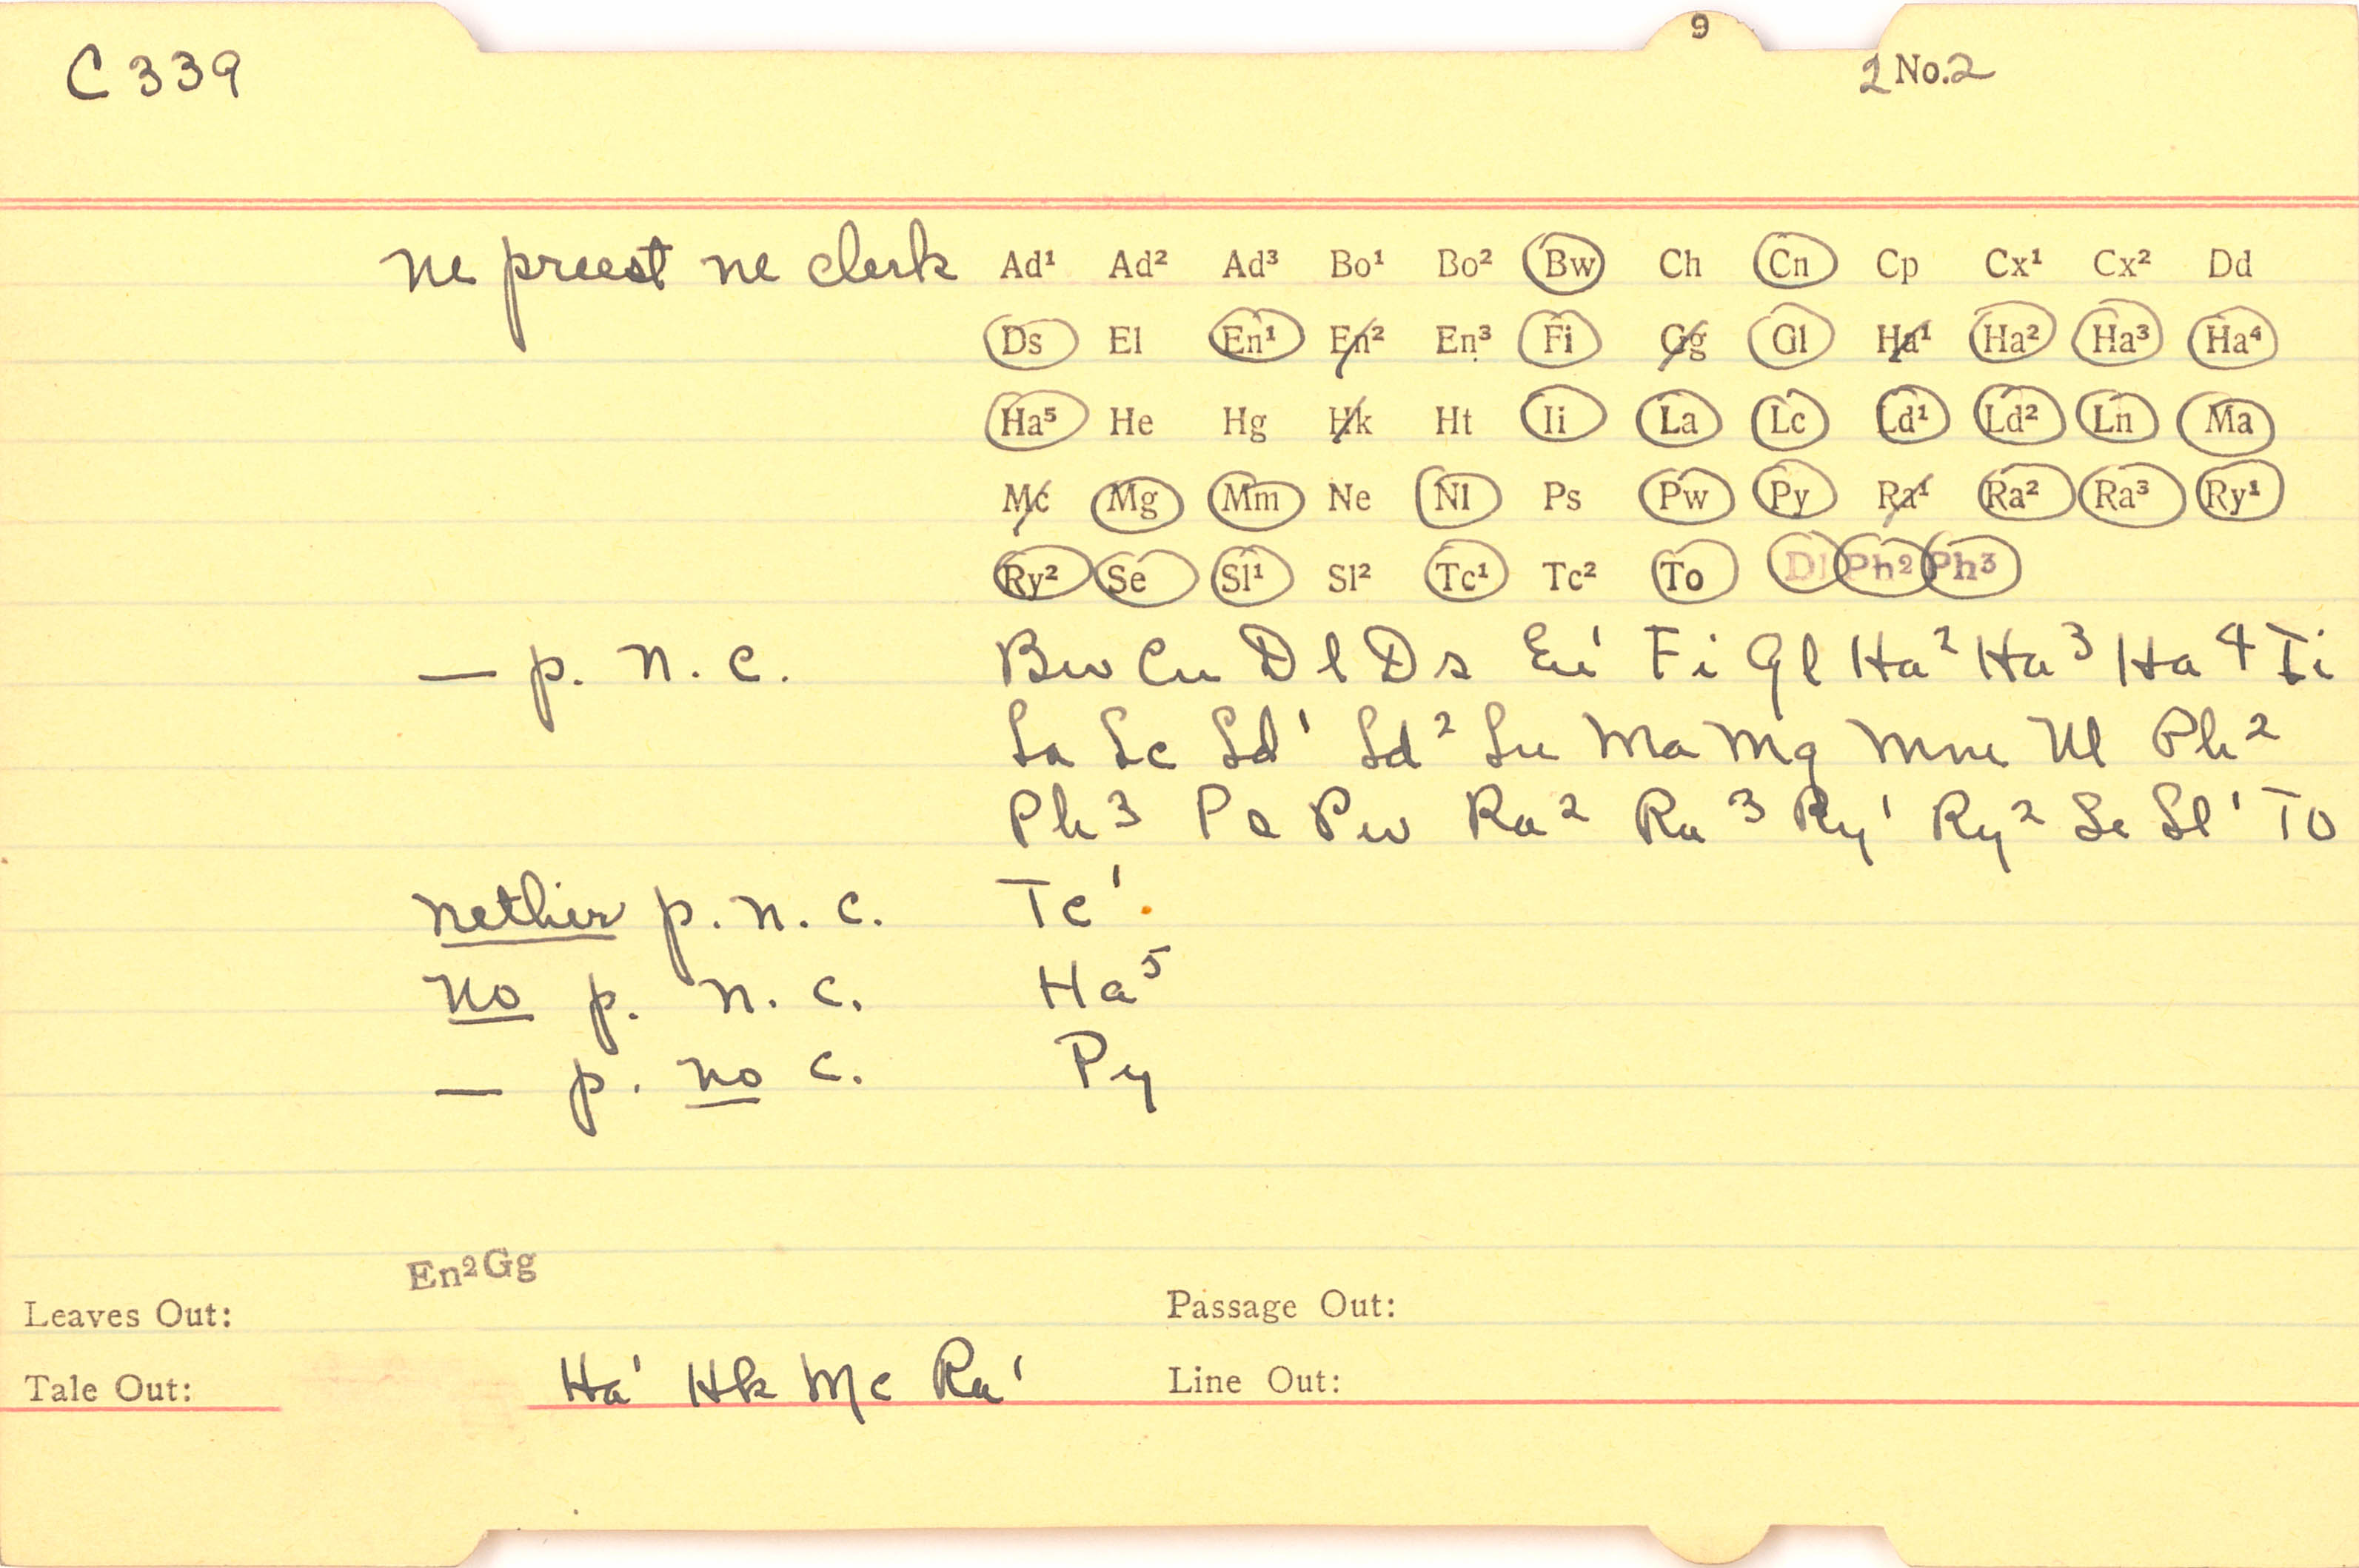 9
C 339
2 No. 2
ne preest ne clerk Ad¹ Ad² Ad³ Bo¹ Bo² Bw Ch Cn Cp Cx¹ Cx² Dd
Ds El En¹ En² En³ Fi Gg Gl Ha¹ Ha² Ha³ Ha⁴
Ha⁵ He Hg Hk Ht Ii La Lc Ld¹ Ld² Ln Ma
Mc Mg Mm Ne Nl Ps Pw Py Ra¹ Ra² Ra³ Ry¹
Ry² Se Sl¹ Sl² Tc¹ Tc² To Dl Ph² Ph³
— p. n. c. Bw Cn Dl Ds En¹ Fi Gl Ha² Ha³ Ha⁴ Ii
La Lc Ld¹ Ld² Ln Ma Mg Mm Nl Ph²
Ph³ Ps Pw Ra² Ra³ Ry¹ Ry² Se Sl¹ To
nether p. n. c. Tc¹
no p. n. c. Ha⁵
— p. no c. Py
En² Gg
Leaves Out: Passage Out:
Tale Out: Ha¹ Hk Mc Ra¹ Line Out: